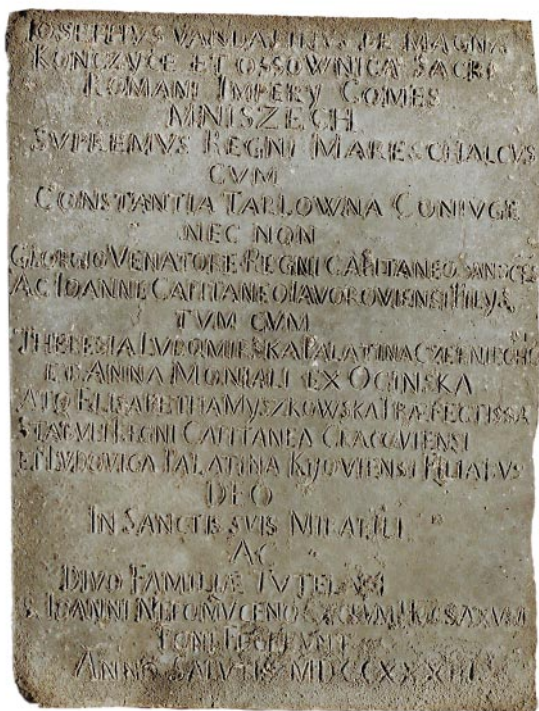 IOSEPHVS VANDALINVS DE MAGNA
KONCZYCE ET OSSOWNICA SACRI
ROMANI IMPERY COMES
MNISZECH
SVPREMVS REGNI MARESCHALCVS
CVM
CONSTANTIA TARLOWNA CONIVGE
NEC NON
GEORGIO VENATORE REGNI CAPITANEO
AC IOANNE CAPITANEO IAVOROVIENSI FILYS
TVM CVM
THERESIA LVBOMIRSKA PALATINA CZERNIECHO
ET ANNA MONIALI EX
ATQ ELISABETHA MYSZKOWSKA PRÆFECTISSA
STABVLI REGNI CAPITANEA CRACOVIENSI
ET LVDOVICA PALATINA KYOVIENSI FILIABVS
DEO
IN SANCTIS SVIS MIRABILI
AC
DIVO FAMILIÆ TVTELARI
S. IOANNI NEPOMVCENO SAXVM
ANNO SALVTIS MDCCXXXIII